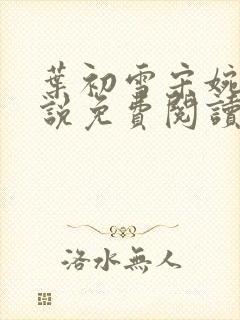 葉初雪宋婉
說免費閱讀
洛水無人